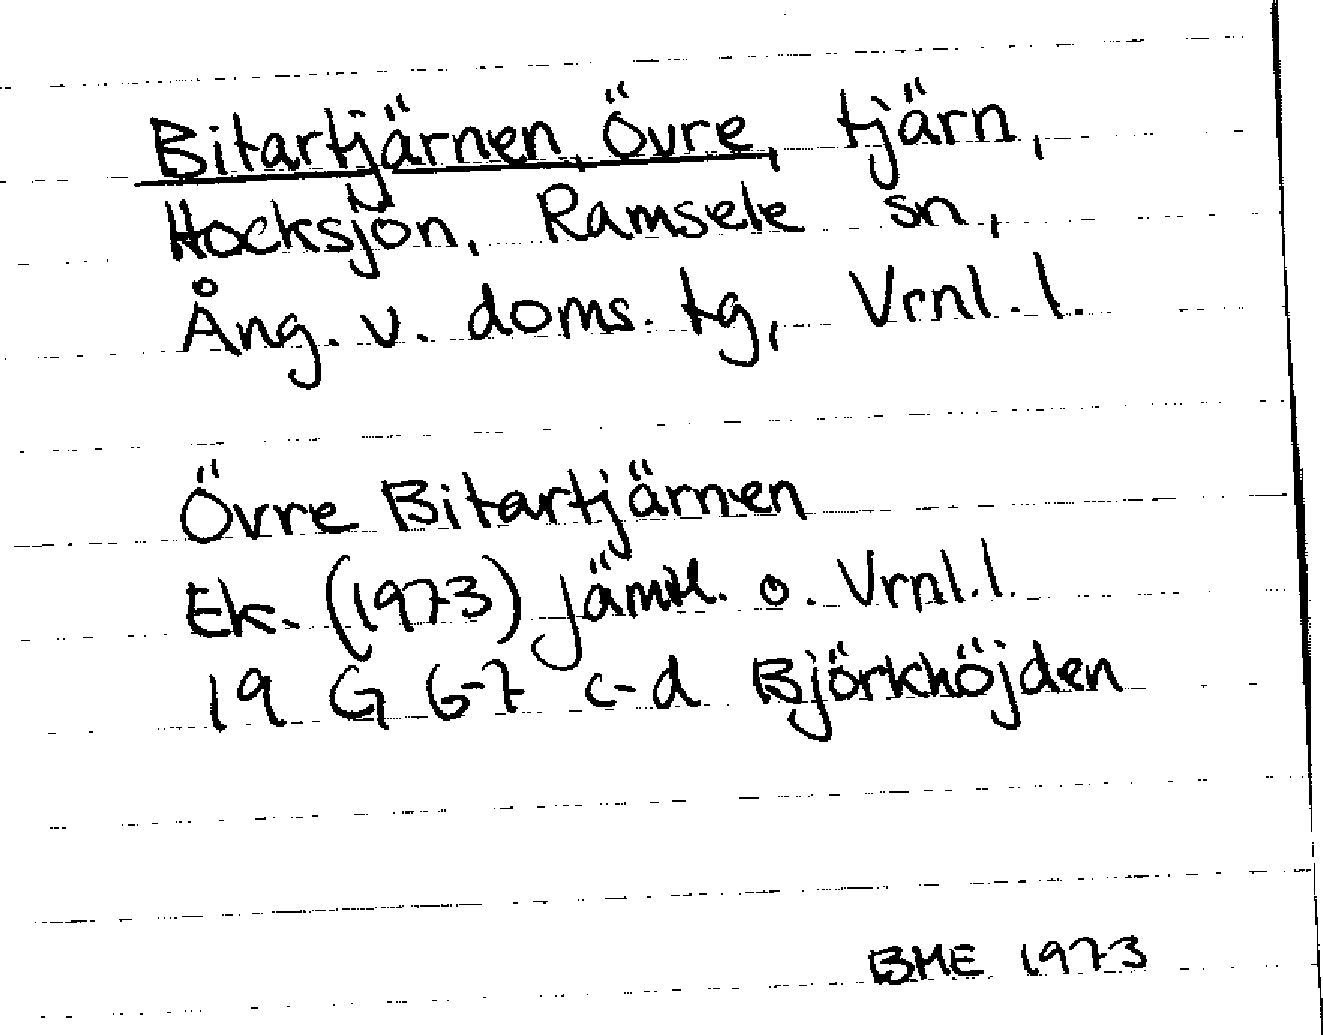 Bitartjärnen, Övre, tjärn,
Hocksjön, Ramsele sn,
Ång. v. doms. tg, Vrnl. l.
Övre Bitartjärnen
Ek. (1973) Jämtl. o. Vrnl. l.
19 G 6-7 c-d Björkhöjden
BME 1973